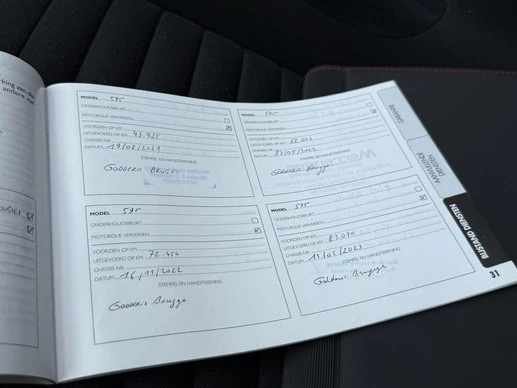 MODEL 595
ONDERHOUDSBEURT
MOTOROLIE VERVERSEN
VOORZIEN OP KM
UITGEVOERD OP KM 43.925
CHASSIS NR.
DATUM 19/08/2021
STEMPEL EN HANDTEKENING
Godderis Brugge
MODEL 595
ONDERHOUDSBEURT
MOTOROLIE VERVERSEN
VOORZIEN OP KM
UITGEVOERD OP KM
CHASSIS NR.
DATUM
STEMPEL EN HANDTEKENING
Godderis Brugge
MODEL 595
ONDERHOUDSBEURT
MOTOROLIE VERVERSEN
VOORZIEN OP KM
UITGEVOERD OP KM 72.454
CHASSIS NR.
DATUM 16/11/2022
STEMPEL EN HANDTEKENING
Godderis Brugge
MODEL 595
ONDERHOUDSBEURT
MOTOROLIE VERVERSEN
VOORZIEN OP KM
UITGEVOERD OP KM 83.090
CHASSIS NR.
DATUM 15/05/2023
STEMPEL EN HANDTEKENING
Godderis Brugge
DIENSTEN
BIJSTAND DIENSTEN
31